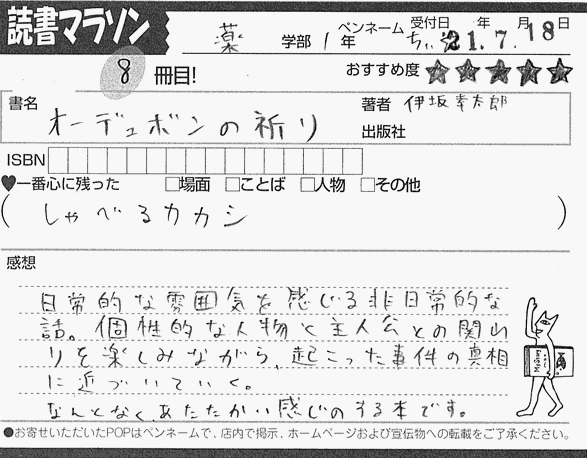 読書マラソン
薬 学部 1年 ペンネーム ちぃ 受付日 21年 7月 18日
8 冊目! おすすめ度 ★★★★★
書名 オーデュボンの祈り 著者 伊坂幸太郎
出版社
ISBN
♥一番心に残った □場面 □ことば □人物 □その他
( しゃべるカカシ )
感想
日常的な雰囲気を感じる非日常的な
話。個性的な人物と主人公との関わ
りを楽しみながら、起こった事件の真相
に近づいていく。
なんとなく、あたたかい感じのする本です。
●お寄せいただいたPOPはペンネームで、店内で掲示、ホームページおよび宣伝物への転載をご了承ください。